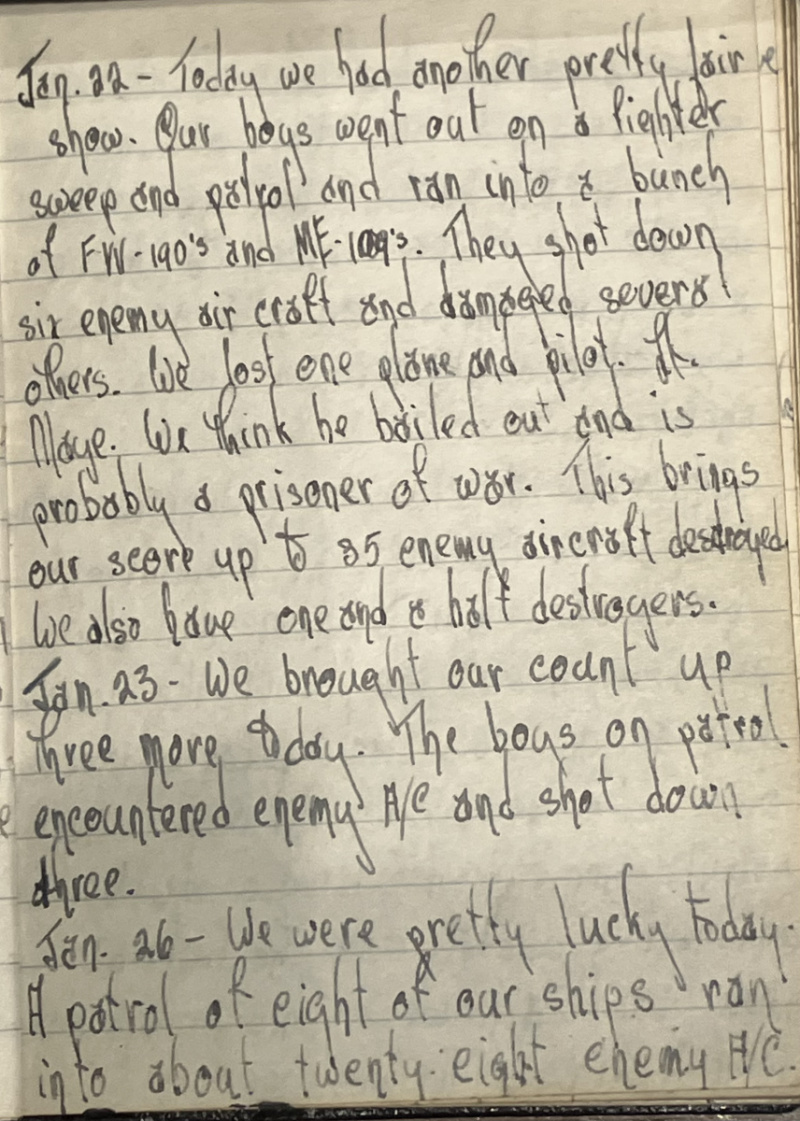 Jan. 22 - Today we had another pretty fair
show. Our boys went out on a fighter
sweep and patrol and ran into a bunch
of FW-190's and ME-109's. They shot down
six enemy air craft and damaged several
others. We lost one plane and pilot. Lt.
Maye. We think he bailed out and is
probably a prisoner of war. This brings
our score up to 35 enemy aircraft destroyed
We also have one and a half destroyers.
Jan. 23 - We brought our count up
three more today. The boys on patrol
encountered enemy A/C and shot down
three.
Jan. 26 - We were pretty lucky today.
A patrol of eight of our ships ran
into about twenty-eight enemy A/C.